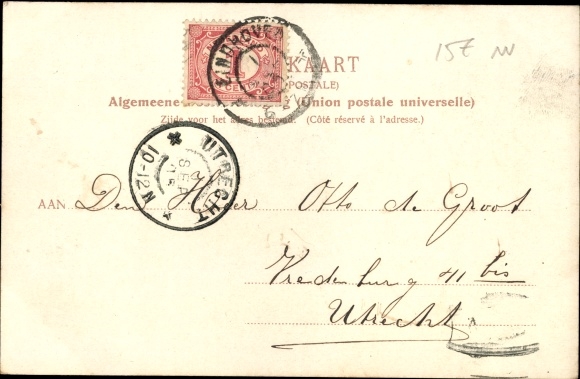 15E nw
KAART
POSTALE)
Algemeene (Union postale universelle)
Zijde voor het adres bestemd. (Côté réservé à l'adresse.)
EINDHOVEN
UTRECHT
10-12 N
SEP
AAN Den Heer Otto de Groot
Vredenburg 41 bis
Utrecht